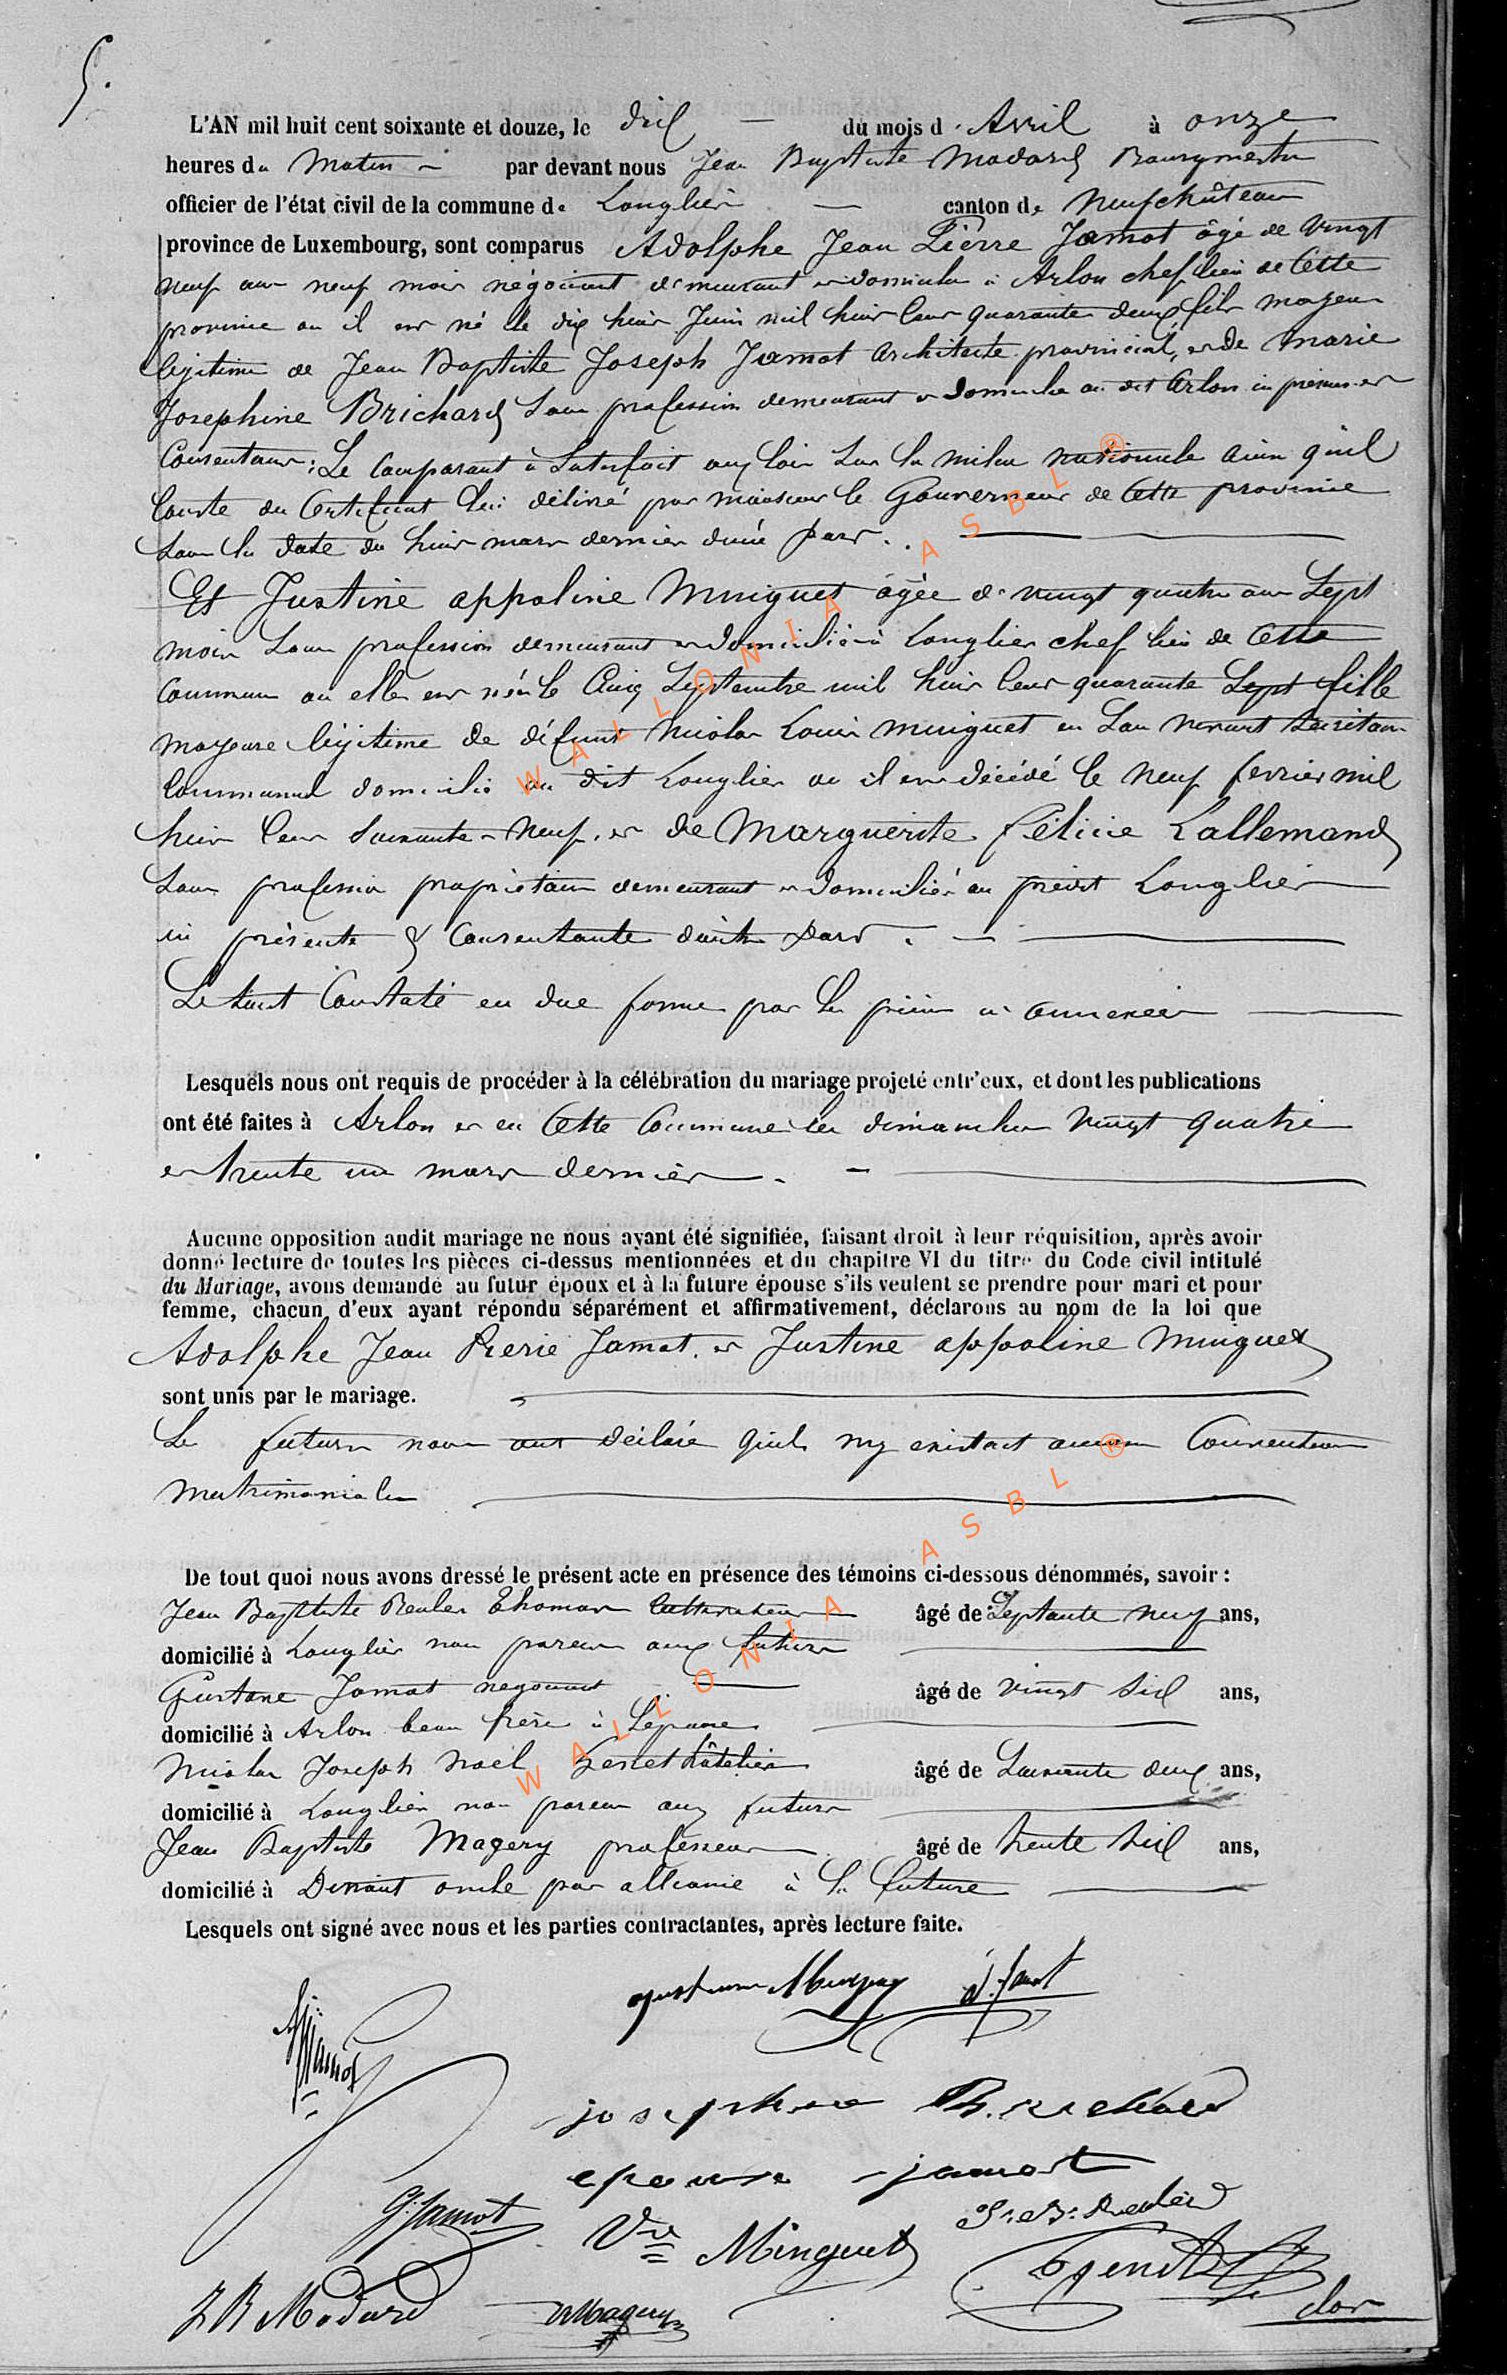 5.
L'AN mil huit cent soixante et douze, le dix du mois d'Avril à onze
heures du Matin par devant nous Jean Baptiste Madard Bourgmestre
officier de l'état civil de la commune de Longlier canton de Neufchâteau
province de Luxembourg, sont comparus Adolphe Jean Pierre Jamot âgé de vingt
neuf ans neuf mois négociant demeurant et domicilié à Arlon chef lieu de Cette
province ou il est né le dix huit Juin mil huit Cent quarante deux fils majeur
légitime de Jean Baptiste Joseph Jamot Architecte provincial, et de Marie
Josephine Brichard Sans profession demeurant et domiciliés au dit Arlon ici présens et
Consentans; Le Comparant a Satisfait aux lois Sur la milice nationale ainsi qu'il
Conste du Certificat lui délivré par monsieur le Gouverneur de Cette province
Sous la date du huit mars dernier d'une part.
Et Justine appoline Minguet âgée de vingt quatre ans Sept
mois Sans profession demeurant et domiciliée à Longlier chef lieu de Cette
Commune ou elle est née le Cinq Septembre mil huit Cent quarante Sept fille
majeure légitime de défunt Nicolas Louis Minguet en Son vivant Secrétaire
Communal domicilié au dit Longlier ou il est décédé le neuf fevrier mil
huit Cent Soixante neuf. et de Marguerite Félicie Lallemand
Sans profession propriétaire demeurant et domiciliée au prédit Longlier
ici présente & Consentante d'autre part.
Le tout Constaté en due forme par les pièces ci annexées
Lesquels nous ont requis de procéder à la célébration du mariage projeté entr'eux, et dont les publications
ont été faites à Arlon et en Cette Commune les dimanches vingt quatre
et trente un mars dernier.
Aucune opposition audit mariage ne nous ayant été signifiée, faisant droit à leur réquisition, après avoir
donné lecture de toutes les pièces ci-dessus mentionnées et du chapitre VI du titre du Code civil intitulé
du Mariage, avons demandé au futur époux et à la future épouse s'ils veulent se prendre pour mari et pour
femme, chacun d'eux ayant répondu séparément et affirmativement, déclarons au nom de la loi que
Adolphe Jean Pierre Jamot. et Justine appoline Minguet
sont unis par le mariage.
Les futurs nous ont déclaré qu'il n'y existait aucune Convention
Matrimoniale
De tout quoi nous avons dressé le présent acte en présence des témoins ci-dessous dénommés, savoir :
Jean Baptiste Reuler Thomas Cultivateur âgé de Septante neuf ans,
domicilié à Longlier non parent aux futurs
Gustave Jamot negociant âgé de vingt Six ans,
domicilié à Arlon beau frère à l'epouse
Nicolas Joseph Noël Genet hôtelier âgé de Soixante deux ans,
domicilié à Longlier non parent aux futurs
Jean Baptiste Magery professeur âgé de trente Six ans,
domicilié à Dinant oncle par alliance à la future
Lesquels ont signé avec nous et les parties contractantes, après lecture faite.
Jamot
josephine Brichard
epouse jamot
G. Jamot
Vve Minguet
J B Madard
Magery
WALLONIA ASBL ®
WALLONIA ASBL ®